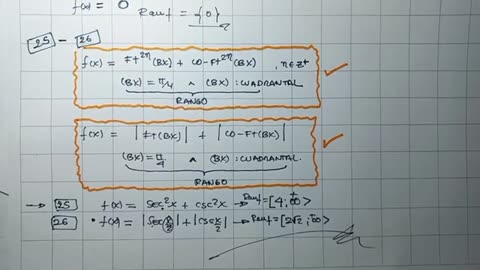 f(x) = 0 Ranf = {0}
25 - 26
f(x) = Ft²ⁿ(Bx) + CO-Ft²ⁿ(Bx) , n∈Z⁺
(Bx) = π/4 ∧ (Bx) : CUADRANTAL
RANGO
f(x) = |Ft(Bx)| + |CO-Ft(Bx)|
(Bx) = π/4 ∧ (Bx) : CUADRANTAL
RANGO
→ 25 f(x) = sec²x + csc²x → Ranf = [4; +∞>
26 • f(x) = |sec x/2| + |csc x/2| → Ranf = [2√2; +∞>